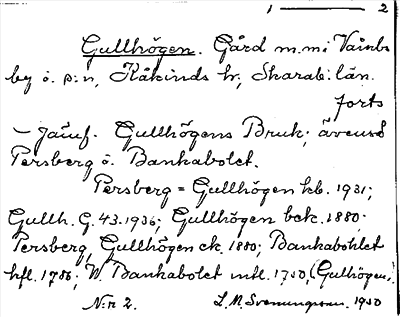 1 ——— 2
Gullhögen. Gård m.m. i Våmbs
by o. s:n, Kåkinds hr, Skarab: län.
forts
– Jämf. Gullhögens Bruk; ävenså
Persberg o. Bankabolet.
Persberg = Gullhögen hb. 1931;
Gullh. G. 43. 1936; Gullhögen bek. 1880;
Persberg, Gullhögen ek. 1880; Bankabohlet
hfl. 1786; W. Bankabolet mtl. 1750, (Gulhögen;)
N:r 2. L. M. Svenungsson. 1950